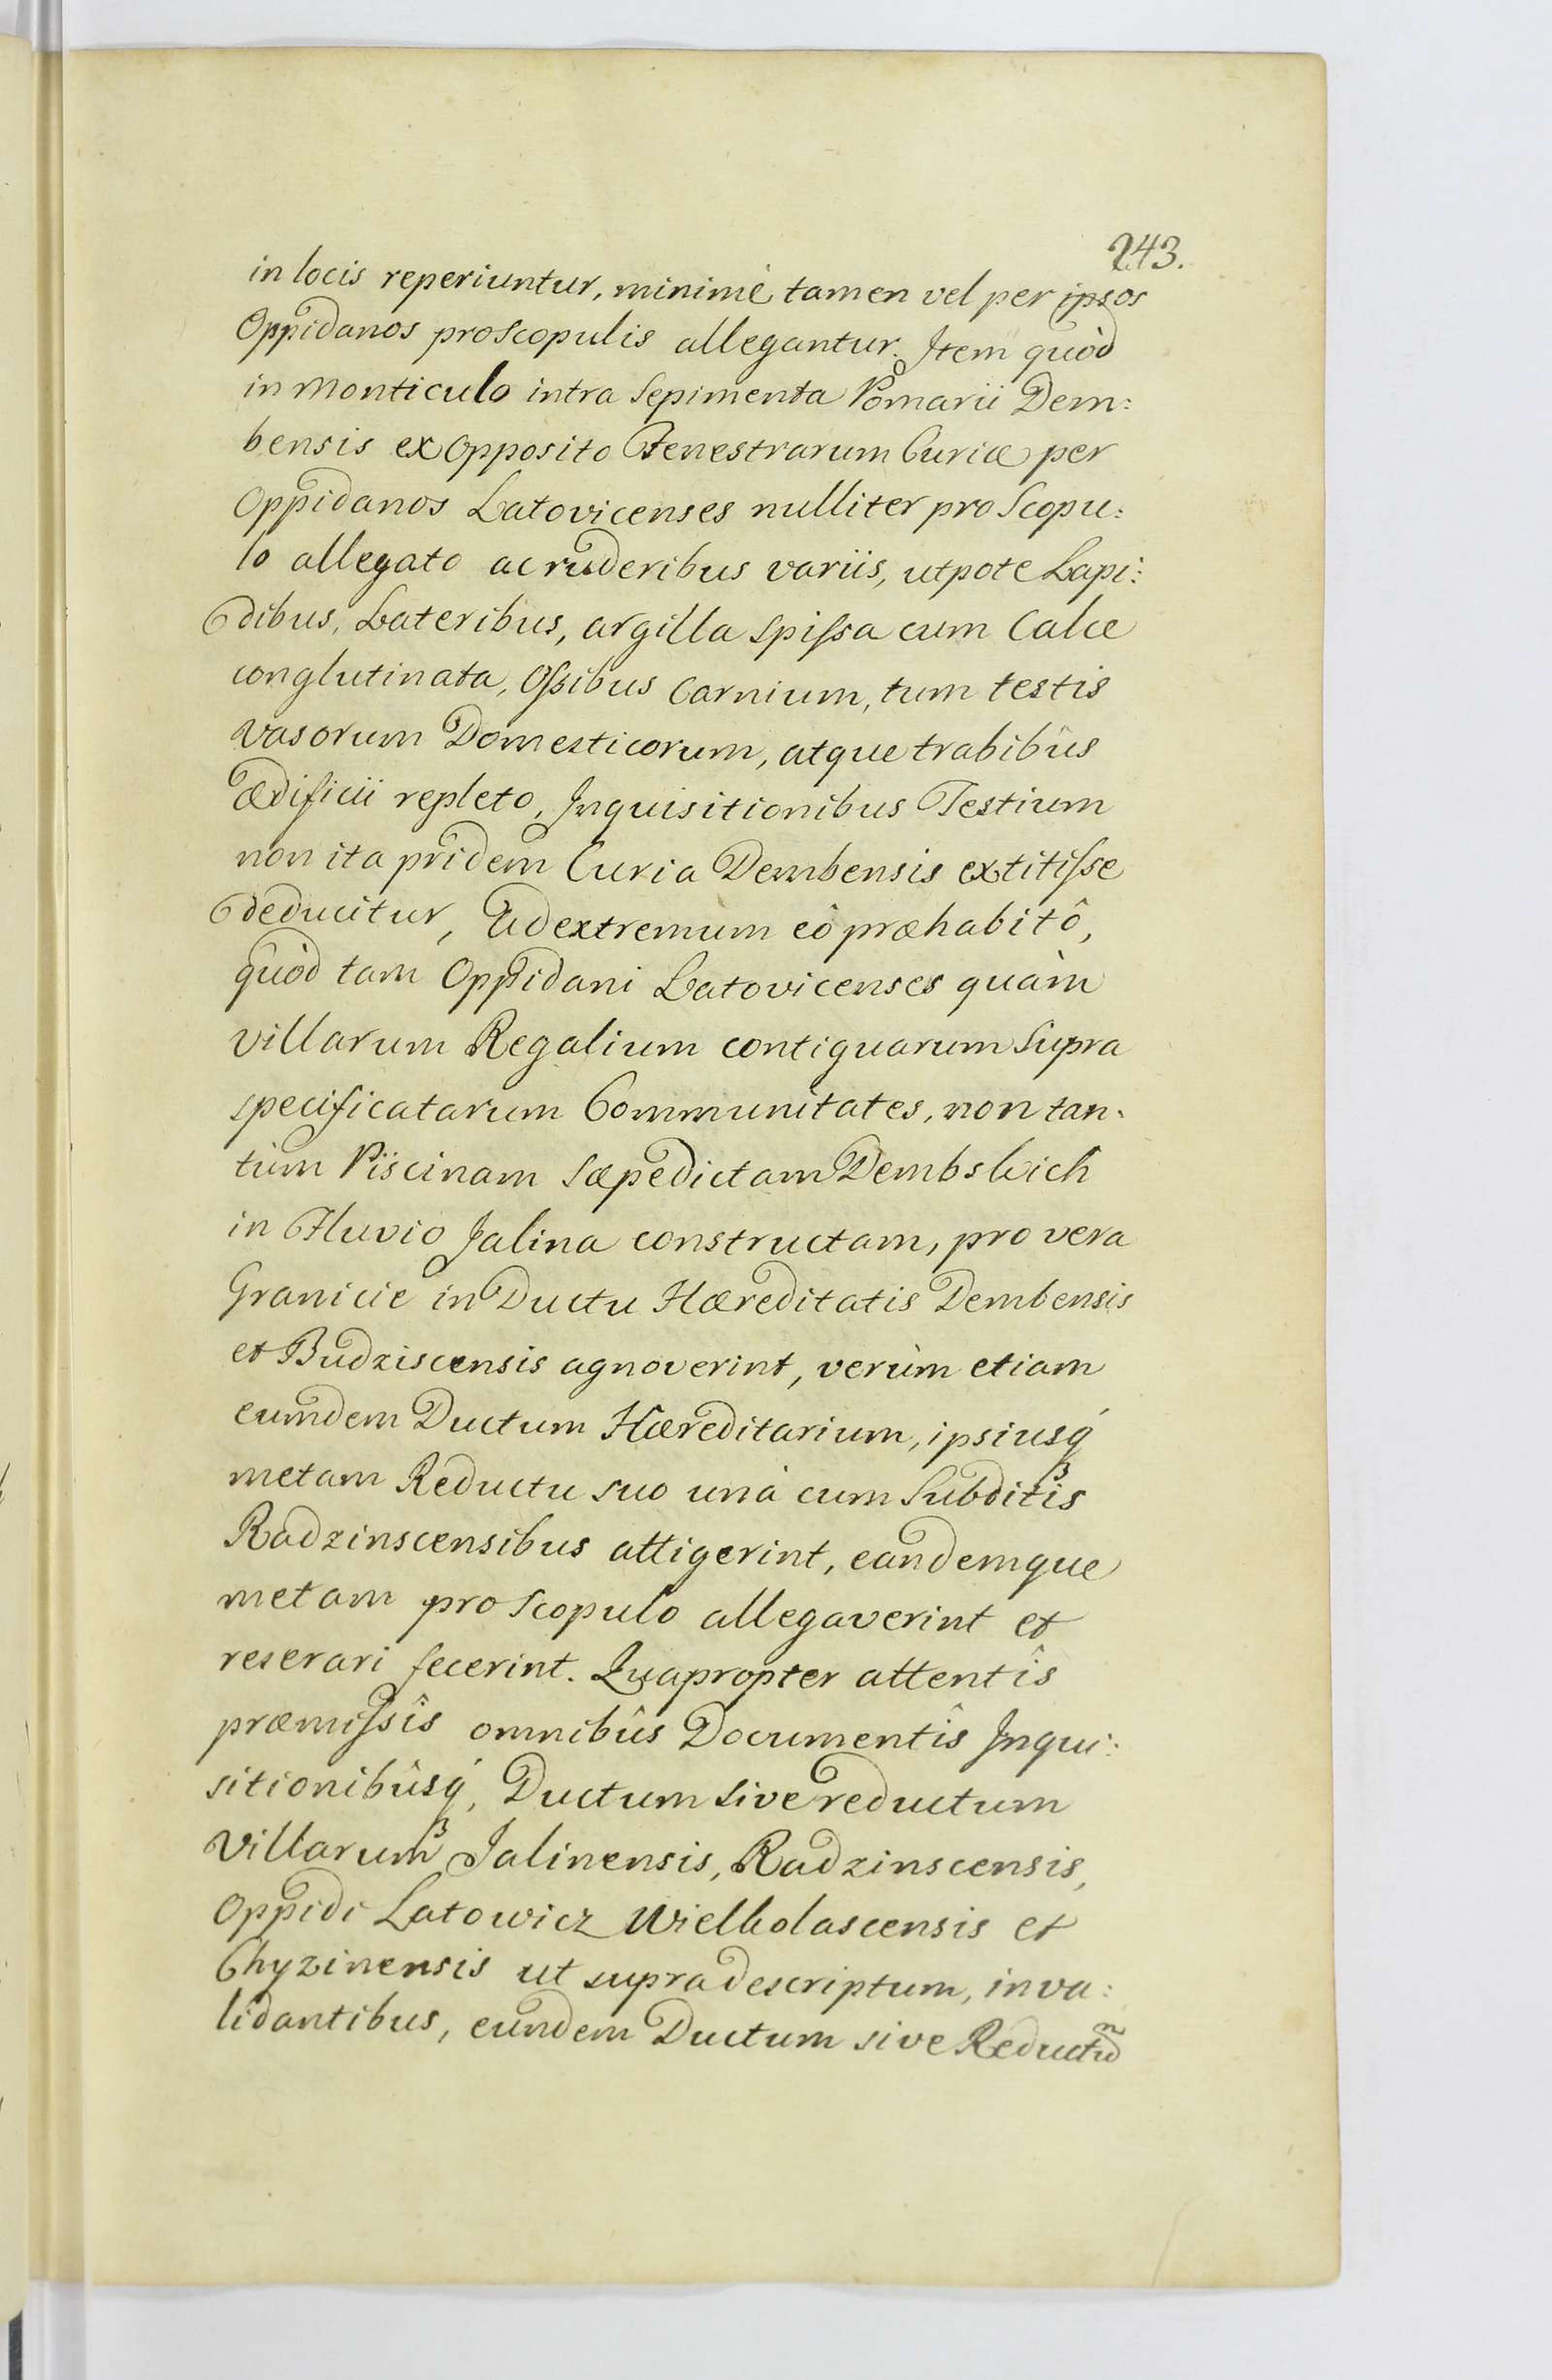 243.
in locis reperiuntur, minimè tamen vel per ipsos
Oppidanos pro Scopulis allegantur. Item quòd
in Monticulo intra Sepimenta Pomarii Dem:
bensis ex Opposito Fenestrarum Curiæ per
Oppidanos Latovicenses nulliter pro Scopu:
lo allegato ac ruderibus variis, utpote Lapi:
dibus, Lateribus, argilla spissa cum Calce
conglutinata, Ossibus Carnium, tum testis
Vasorum Domesticorum, atque trabibûs
ædificii repleto, Inquisitionibus Testium
non ita pridem Curia Dembensis extitisse
deducitur, Ad extremum eô præhabitô,
quòd tam Oppidani Latovicenses quàm
Villarum Regalium contiguarum supra
specificatarum Communitates, non tan:
tùm Piscinam Sæpedictam
in Fluvio Jalina constructam, pro vera
Granicie in Ductu Hæreditatis Dembensis
et Budziscensis agnoverint, verùm etiam
eumdem Ductum Hæreditarium, ipsiusq́
metam Reductu suo unà cum Subditis
Radzinscensibus attigerint, eandemque
metam pro Scopulo allegaverint et
reserari fecerint. Quapropter attentîs
præmissîs omnibûs Documentîs Inqui:
sitionibûsq́, Ductum sive reductum
Villarum Jalinensis, Radzinscensis,
Oppidi Latowicz Wielholascensis et
Chyzinensis ut supra descriptum, inva:
lidantibus, eundem Ductum sive Reductū